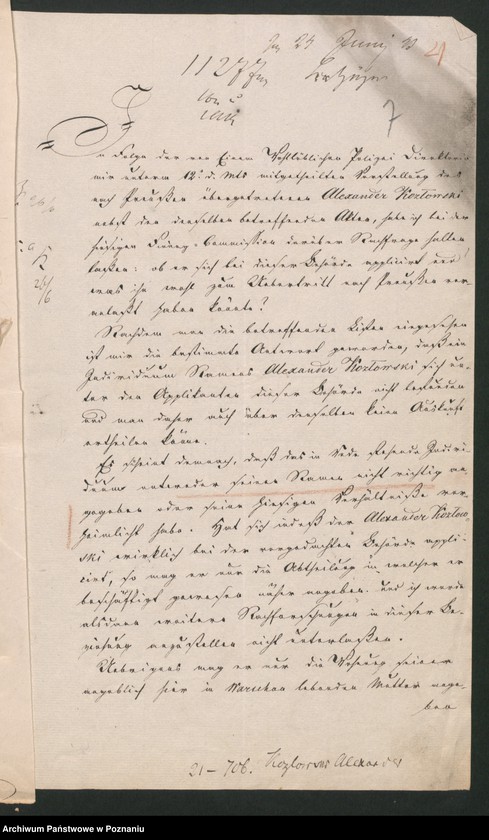 24 Juny 33
21
11277
7
In Folge der von Einem Wohllöblichen Polizei Direktorio
mir unterm 12. d. Mts mitgetheilten Vorstellung des
nach Preußen übergetretenen Alexander Kozłowski
nebst den denselben betreffenden Akten, habe ich bei der
hiesigen Commission darüber Nachfrage halten
laßen: ob er sich bei dieser Behörde applicirt und
was ihn wohl zum Uebertritt nach Preußen ver-
anlaßt haben könnte?
Nachdem man die betreffenden Listen eingesehen
ist mir die bestimmte Antwort geworden, daß ein
Individuum Namens Alexander Kozłowski sich un-
ter den Applikanten dieser Behörde nicht befunden
und man daher auch über denselben keine Auskunft
ertheilen könne.
Es scheint demnach, daß das in Rede stehende Indivi-
duum entweder seinen Namen nicht richtig an-
gegeben oder seine hiesigen Verhältniße ver-
heimlicht habe. Hat sich indeß der Alexander Kozłow-
ski wirklich bei der vorgedachten Behörde appli-
cirt, so mag er nur die Abtheilung in welcher er
beschäftigt gewesen näher angeben und ich werde
alsdann weitere Nachforschungen in dieser Be-
ziehung anzustellen nicht unterlaßen.
Uebrigens mag er nur die Wohnung seiner
angeblich hier in Warschau lebenden Mutter ange-
ben
21-706. Kozłowski Alexander
Archiwum Państwowe w Poznaniu